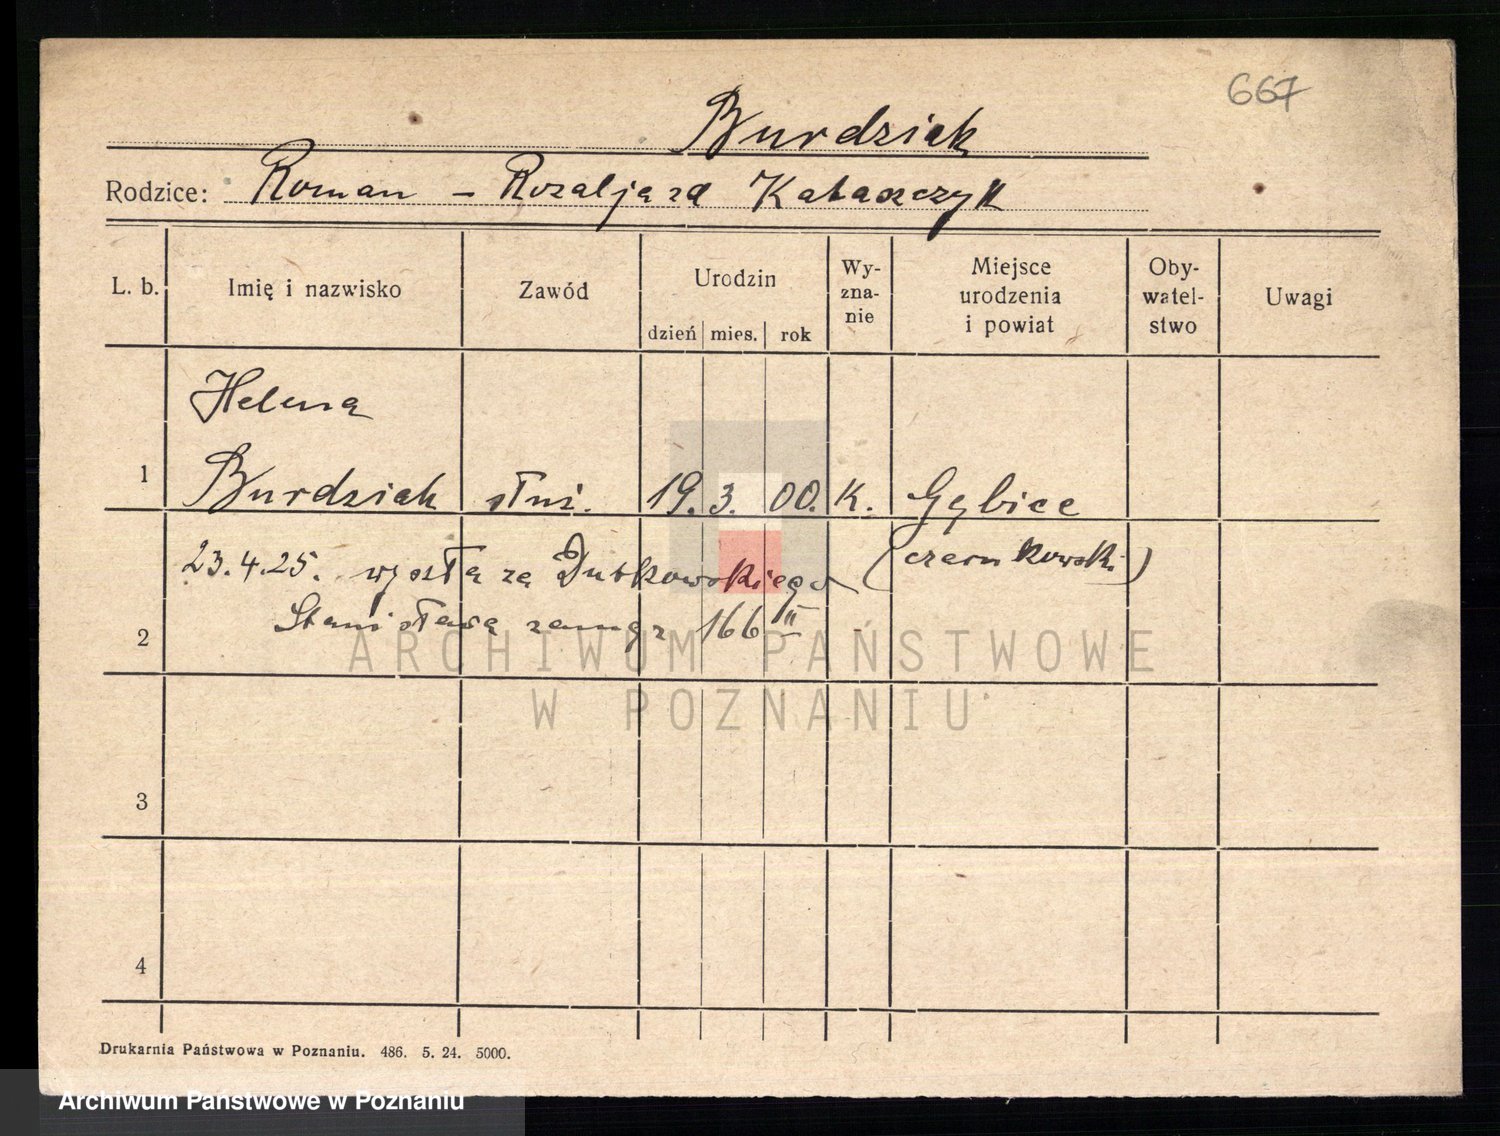 667
Burdziak
Rodzice: Roman - Rozalja zd Kataszczyk
L. b. Imię i nazwisko Zawód Urodzin Wy-zna-nie Miejsce urodzenia i powiat Oby-watel-stwo Uwagi
dzień mies. rok
Helena
1 Burdziak służ. 19. 3. 00. K. Gębice
(czarnkowski)
23.4.25. wyszła za Dutkowskiego
2 Stanisława zamąz 166 II
ARCHIWUM PAŃSTWOWE
W POZNANIU
3
4
Drukarnia Państwowa w Poznaniu. 486. 5. 24. 5000.
Archiwum Państwowe w Poznaniu